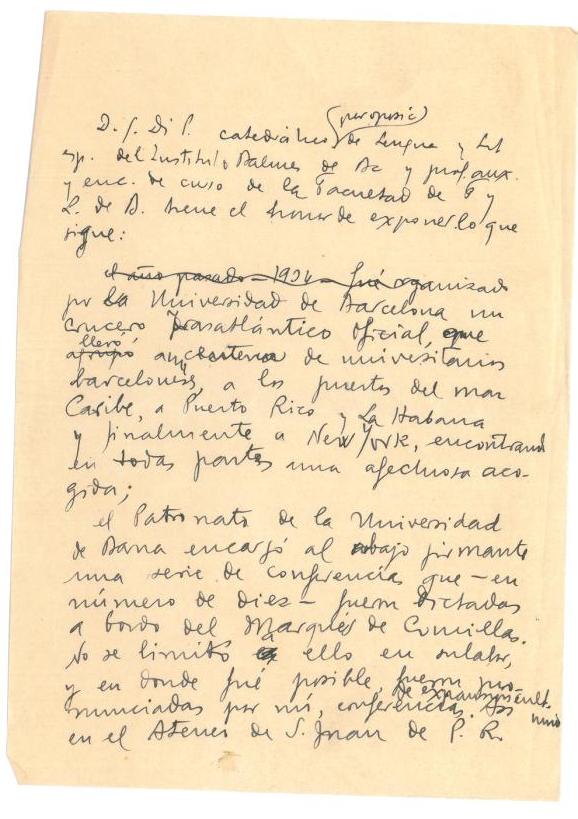 (por oposic)
D. G. Di P. catedrático de Lengua y Lit
esp. del Instituto Balmes de Bc y prof. aux.
y enc. de curso de la Facultad de F y
L. de B. tiene el honor de exponer lo que
sigue:
el año pasado - 1934 - fué organizado
por la Universidad de Barcelona un
crucero trasatlántico oficial, que
llevó
agrupó a un centenar de universitarios
barceloneses, a los puertos del mar
Caribe, a Puerto Rico y La Habana
y finalmente a New York, encontrando
en todas partes una afectuosa aco-
gida;
el Patronato de la Universidad
de Barna encargó al abajo firmante
una serie de conferencias que - en
número de diez - fueron dictadas
a bordo del Marqués de Comillas.
No se limitó a ello en su labor,
y en donde fué posible, fueron pro-
nunciadas por mí, conferencias de expansión cult.
en el Ateneo de S. Juan de P. R.